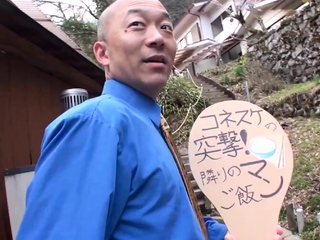 コネスケの
突撃!
隣りのマン
ご飯